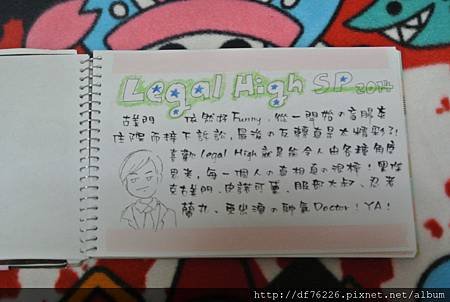 Legal High SP 2014
古美門 依然好Funny，從一開始の音服在
住院而接下訴訟，最後の反轉真是太精彩了！
喜歡legal High就是能令人由各種角度
思考，每一個人の真相真の很棒！黑
古美門、服部大叔、忍者
蘭丸、の帥氣Doctor！YA！
http://df76226.pixnet.net/album